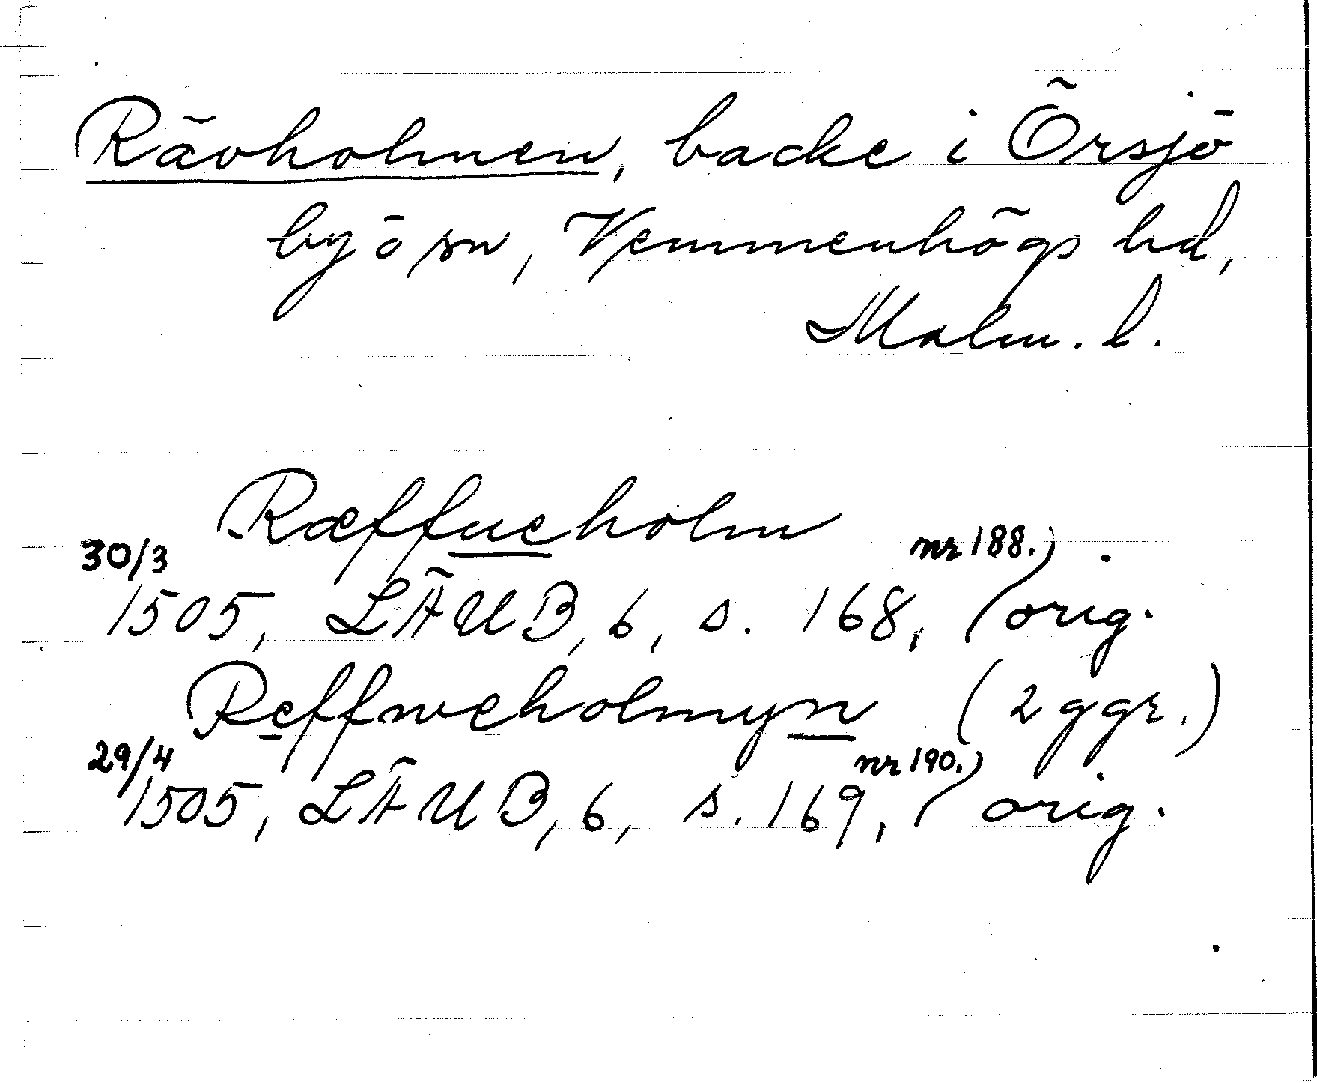 Rävholmen, backe i Örsjö
by o sn, Vemmenhögs hd,
Malm. l.
Ræffueholm
30/3 1505, LÄUB, 6, s. 168, nr 188.) orig.
Reffweholmyn (2 ggr.)
29/4 1505, LÄUB, 6, s. 169, nr 190.) orig.